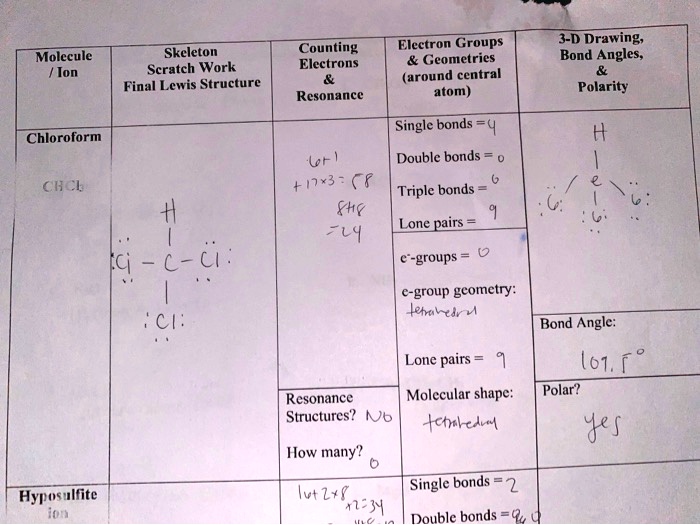 Molecule
/ Ion
Skeleton
Scratch Work
Final Lewis Structure
Counting
Electrons
&
Resonance
Electron Groups
& Geometries
(around central
atom)
3-D Drawing,
Bond Angles,
&
Polarity
Chloroform
CHCl3
H
C - Cl:
:Cl:
+17x3=58
=24
Single bonds = 4
Double bonds = 0
Triple bonds = 0
Lone pairs = 9
e-groups = 0
e-group geometry:
tetrahedral
Lone pairs = 9
Molecular shape:
tetrahedral
H
Bond Angle:
109.5°
Polar?
yes
Resonance
Structures? No
How many?
0
Hyposulfite
ion
x2=34
Single bonds = 2
Double bonds =